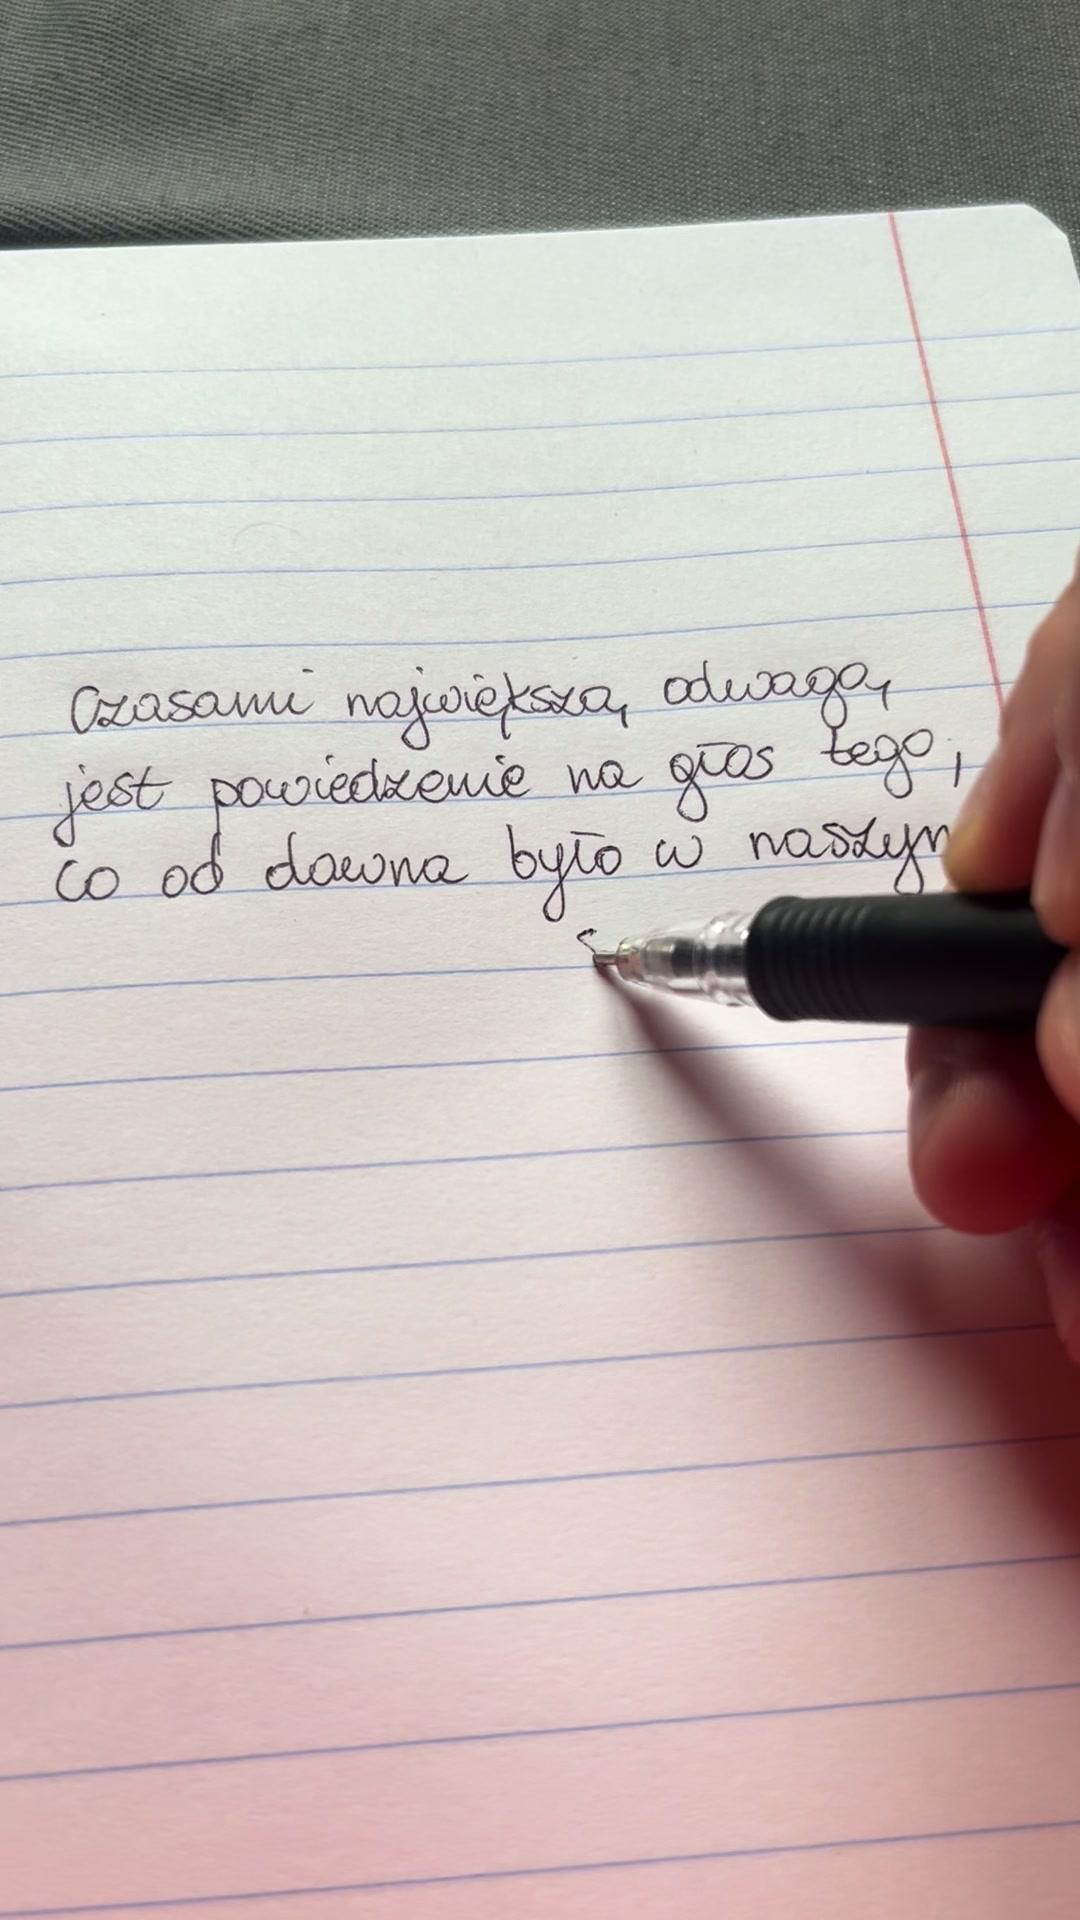 Czasami największą odwagą
jest powiedzenie na głos tego,
co od dawna było w naszym
s